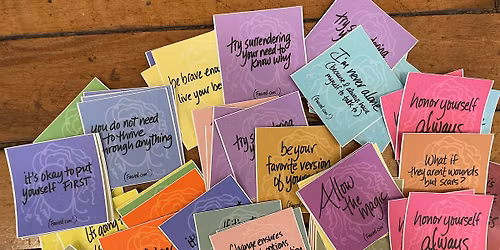 try surrendering
your need to
know why
(Fawell.com)
try surrendering
I'm never alone
(because I always have
myself to talk to)
(Fawell.com)
be brave enough
live your be
you do not need
to thrive
through anything
(Fawell.com)
try surren
honor yourself
always
it's okay to put
yourself FIRST
(Fawell.com)
be your
favorite version
of your
What if
they aren't wounds
but scars?
(Fawell.com)
Allow
the magic
(Fawell.com)
honor yourself
always
It's
Change ensures
options